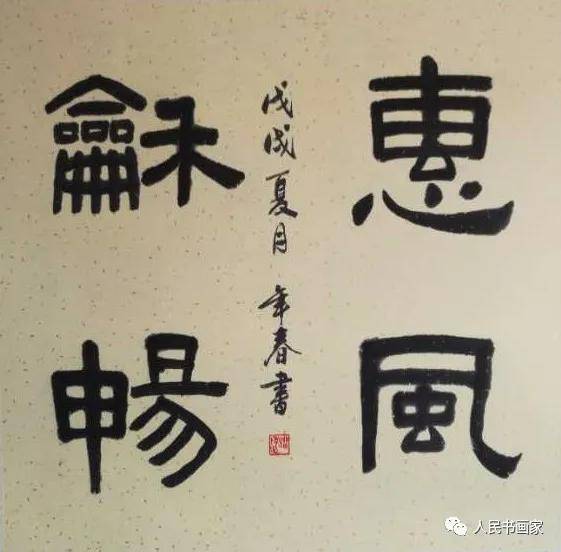 惠風
龢暢
戊戌夏月 年春書
人民书画家